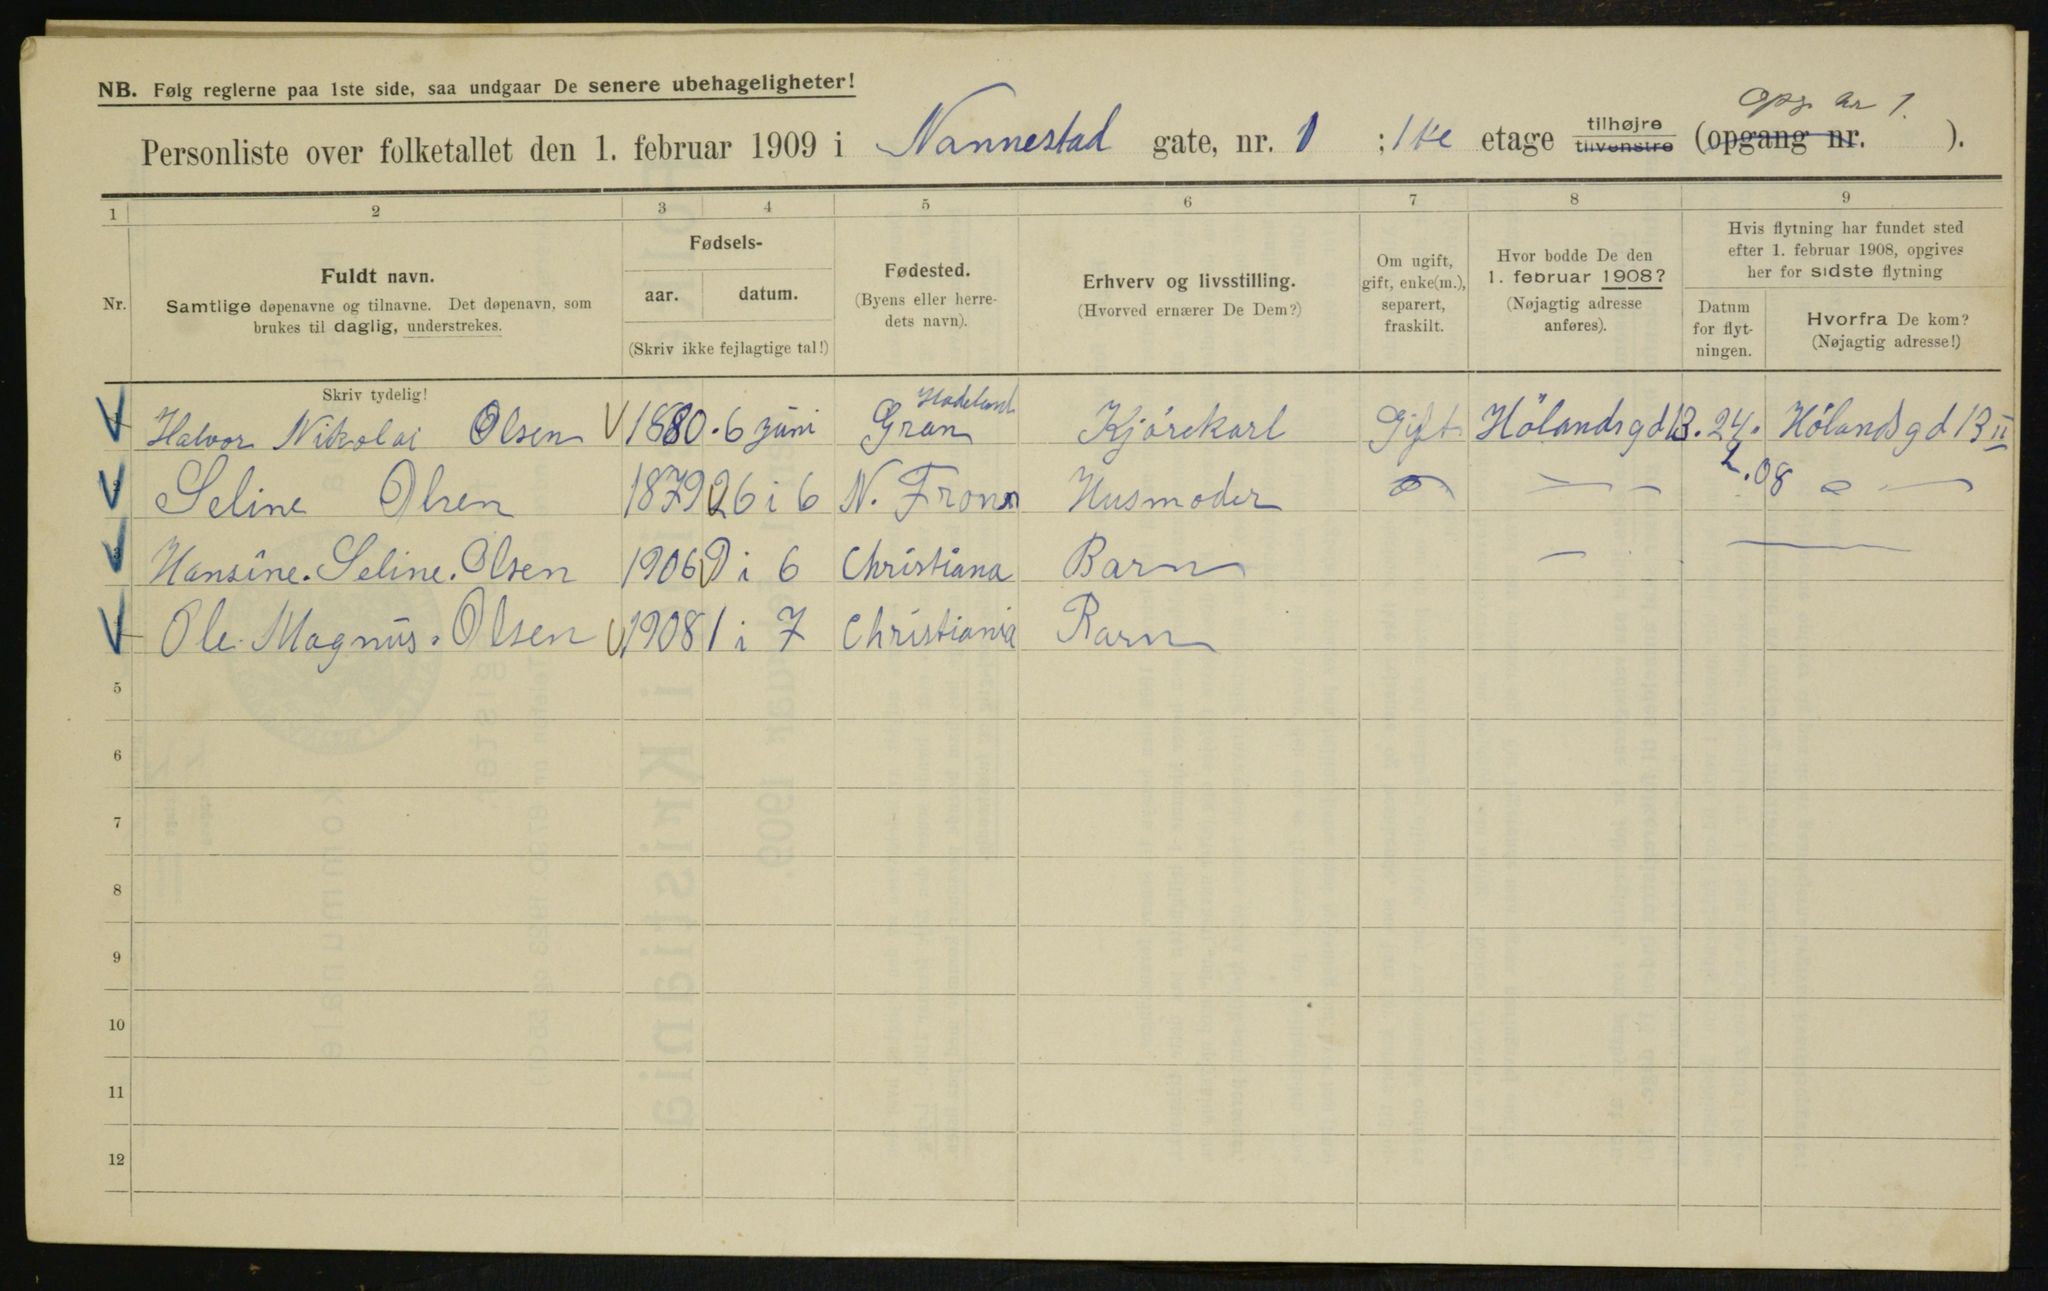 NB. Følg reglerne paa 1ste side, saa undgaar De senere ubehageligheter!
opg. nr 1.
Personliste over folketallet den 1. februar 1909 i Nannestad gate, nr. 1 ; 1ste etage tilhøjre tilvenstre (opgang nr. ).
1 2 3 4 5 6 7 8 9
Nr.
Fuldt navn.
Samtlige døpenavne og tilnavne. Det døpenavn, som
brukes til daglig, understrekes.
Fødsels-
aar. datum.
(Skriv ikke fejlagtige tal!)
Fødested.
(Byens eller herre-
dets navn).
Erhverv og livsstilling.
(Hvorved ernærer De Dem?)
Om ugift,
gift, enke(m.),
separert,
fraskilt.
Hvor bodde De den
1. februar 1908?
(Nøjagtig adresse
anføres).
Hvis flytning har fundet sted
efter 1. februar 1908, opgives
her for sidste flytning
Datum
for flyt-
ningen.
Hvorfra De kom?
(Nøjagtig adresse!)
Skriv tydelig!
Hadeland
Halvor Nikolai Olsen 1880 6 juni Gran Kjörekarl Gift Hölandsgd 13. 24. Hölandsgd 13 II
2.08
Seline Olsen 1879 26 i 6 N. Fron Husmoder
Hansine. Seline. Olsen 1906 9 i 6 Christiana Barn
Ole. Magnus. Olsen 1908 1 i 7 Christiania Barn
5
6
7
8
9
10
11
12